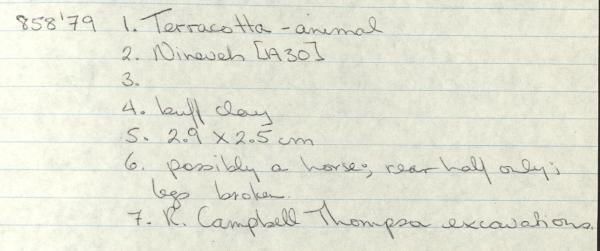 858'79 1. Terracotta - animal
2. Nineveh [1A30]
3.
4. buff clay
5. 2.9 x 2.5 cm
6. possibly a horse; rear half only;
legs broken.
7. R. Campbell Thompson excavations.